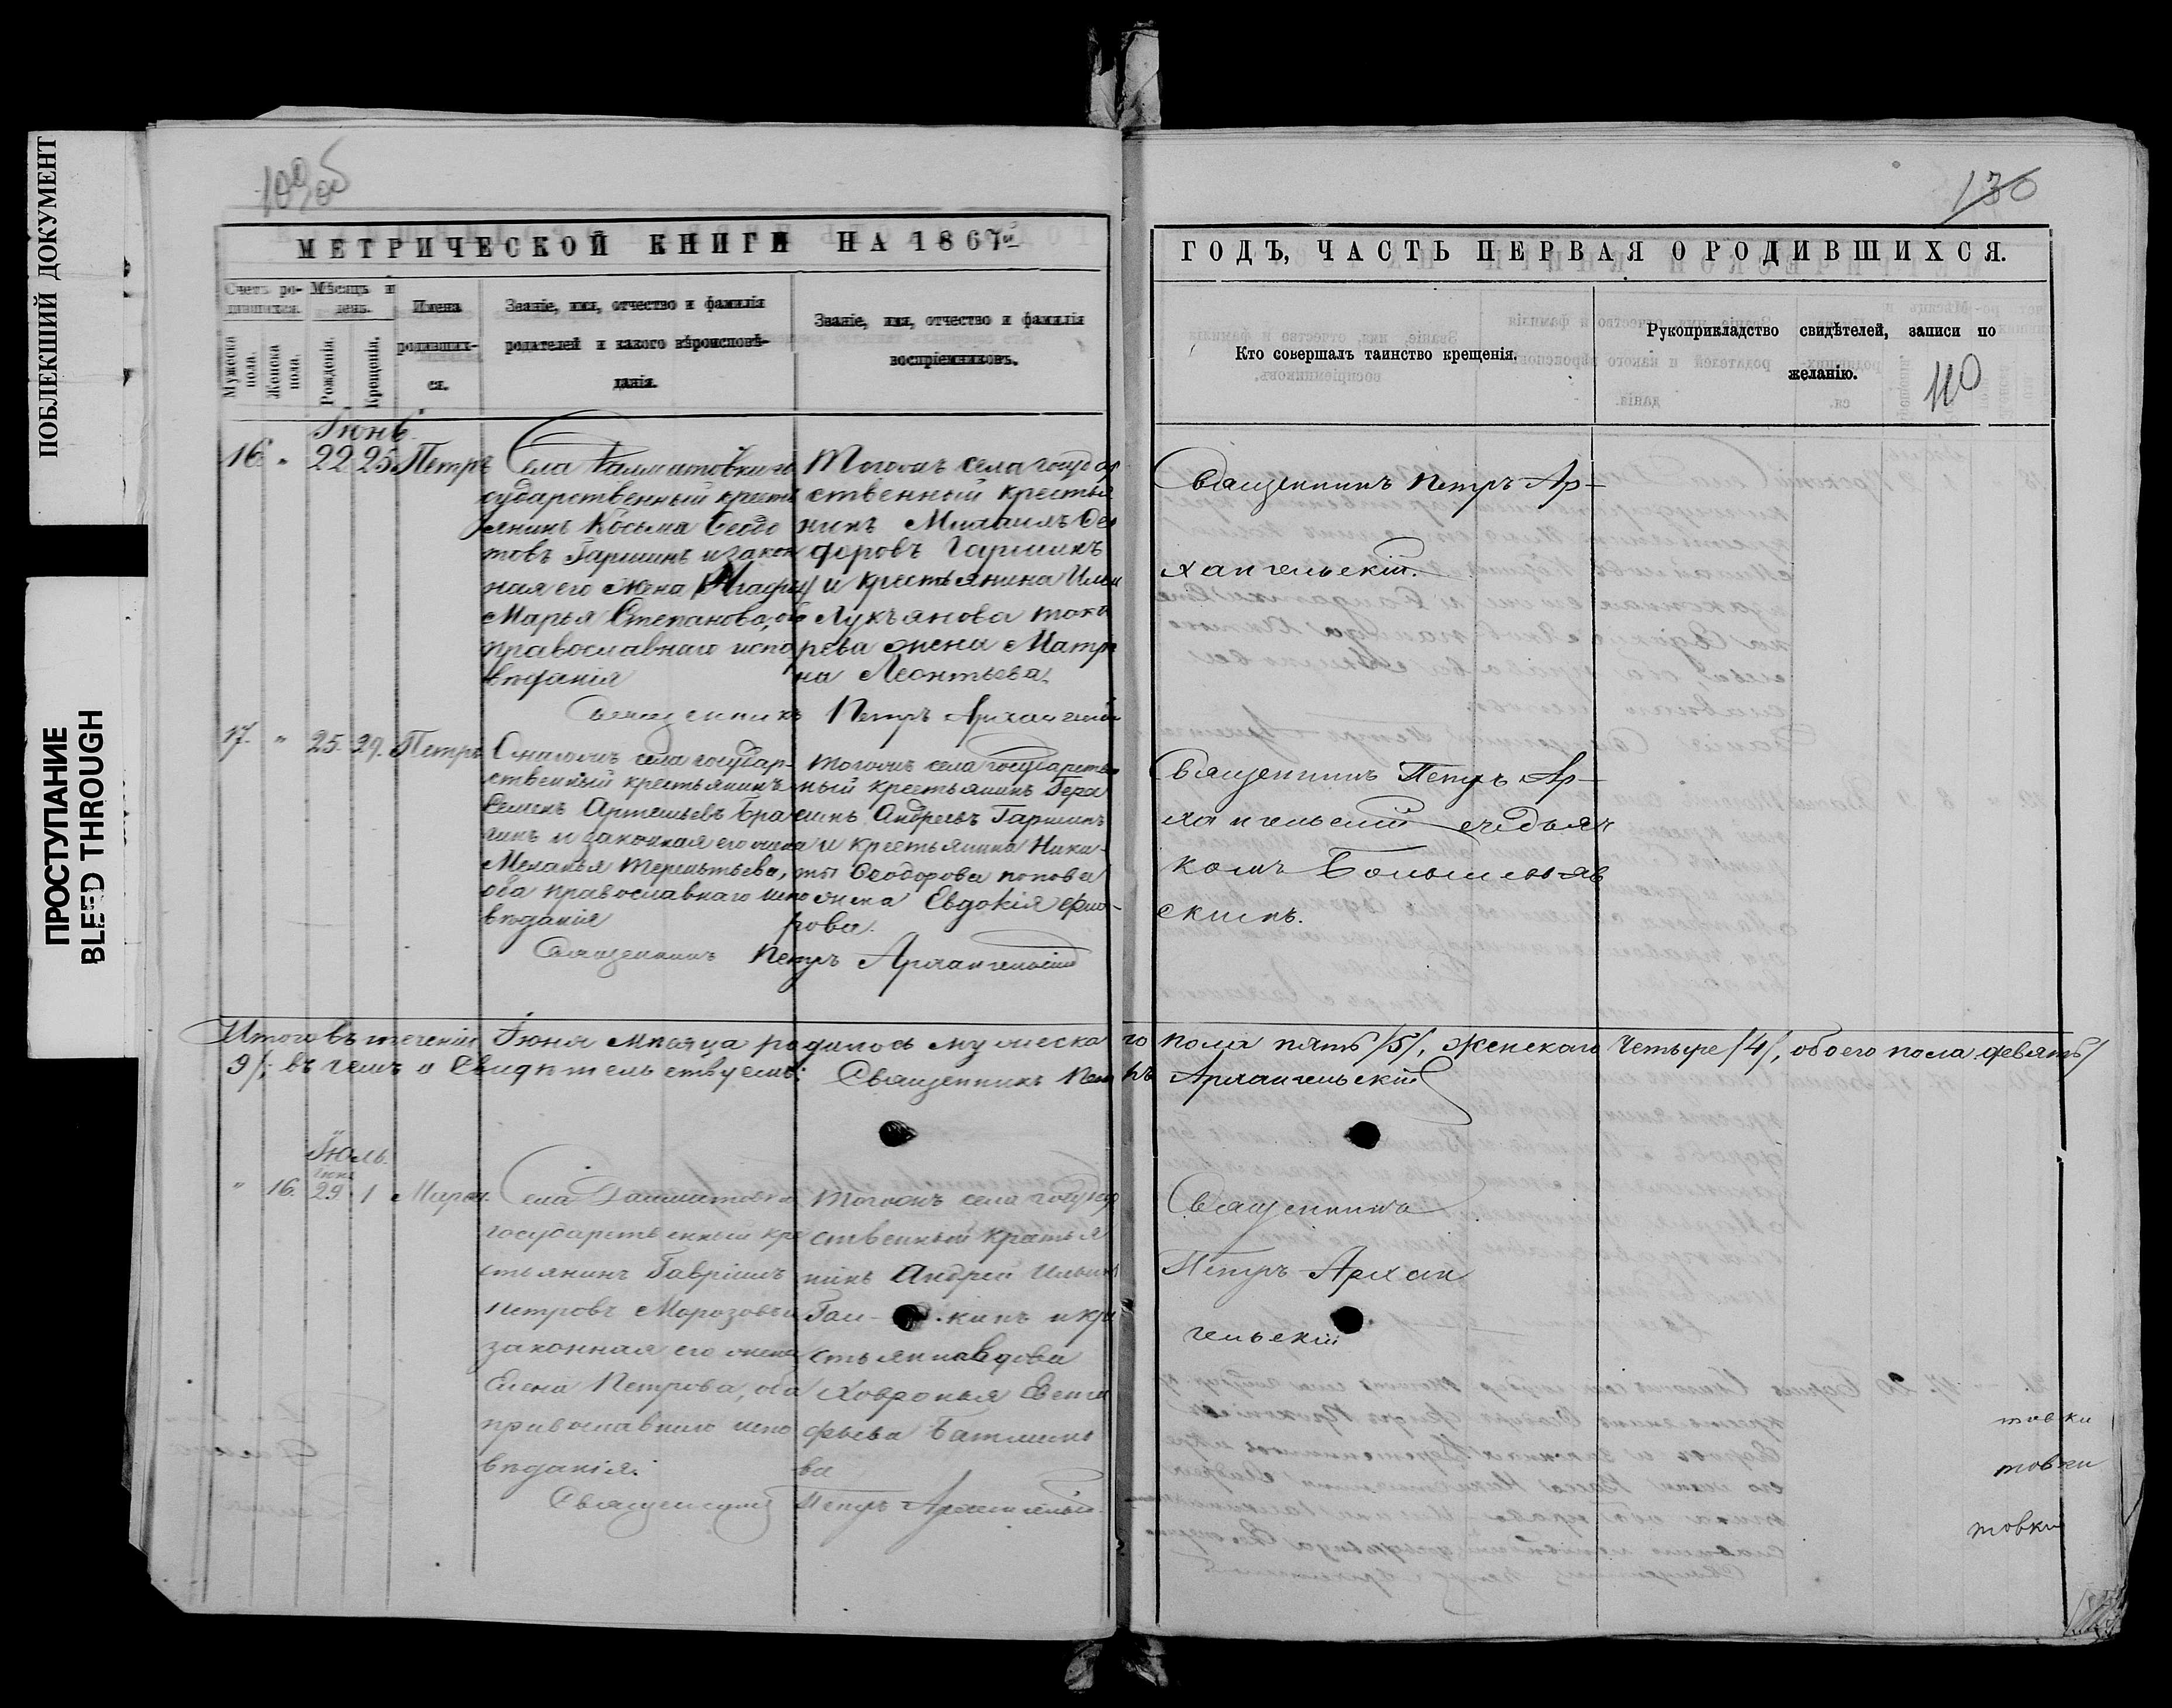 ПОБЛЕКШИЙ ДОКУМЕНТ
ПРОСТУПАНИЕ
BLEED THROUGH
109об
130
МЕТРИЧЕСКОЙ КНИГИ НА 1867й
ГОДЪ, ЧАСТЬ ПЕРВАЯ О РОДИВШИХСЯ.
Счетъ ро-
дившихся.
Мѣсяцъ и
день.
Мужеска
пола.
Женска
пола.
Рожденія.
Крещенія.
Имена
родивших-
ся.
Званіе, имя, отчество и фамилія
родителей и какого вѣроисповѣ-
данія.
Званіе, имя, отчество и фамилія
воспріемниковъ.
Кто совершалъ таинство крещенія.
Рукоприкладство свидѣтелей, записи по
желанію.
110
Іюнь
16. " 22 25 Петръ
Села
сударственный крестья
янинъ Косьма Ѳедо
товъ Гаршинъ и закон
ная его жена
Марья Степанова, оба
православнаго испо
вѣданія
Тогожъ села государ
ственный крестья
нинъ Михаилъ Ѳео
доровъ Гаршинъ
и крестьянина Ильи
Лукъянова Тока
рева жена Матре
на Леонтьева.
Священникъ Петръ Архангельскій
Священникъ Петръ Ар-
хангельскій.
17. " 25. 29. Петръ
Онагожъ села государ-
ственный крестьянинъ
Семенъ Артемьевъ Бра
гинъ и законная его жена
Меланья Терентьева,
оба православнаго испо
вѣданія
Тогожъ села государствен
ный крестьянинъ Гера
симъ Андреевъ Гаршинъ
и крестьянина Ники-
ты Ѳеодорова Попова
жена Евдокія Ѳедо-
рова.
Священникъ Петръ Архангельскій
Священникъ Петръ Ар-
хангельскій съ дьяч
комъ
скимъ.
Итого въ теченіи Іюня мѣсяца родилось мужеска го пола пять /5/, женскаго четыре /4/, обоего пола девять /
9/; въ чемъ и свидѣтельствуемъ: Священникъ Петръ Архангельскій
Іюль.
Іюня
" 16. 29 1 Марья.
Села
государственный кре
стьянинъ Гавріилъ
Петровъ Морозовъ и
законная его жена
Елена Петрова, оба
православнаго испо
вѣданія.
Тогожъ села государ
ственный крестья
нинъ Андрей Ильинъ
и кре
стьянка вдова
Ховронья
ва
Священникъ Петръ Архангельскій.
Священникъ
Петръ Архан
гельскій
товки
товки
товки